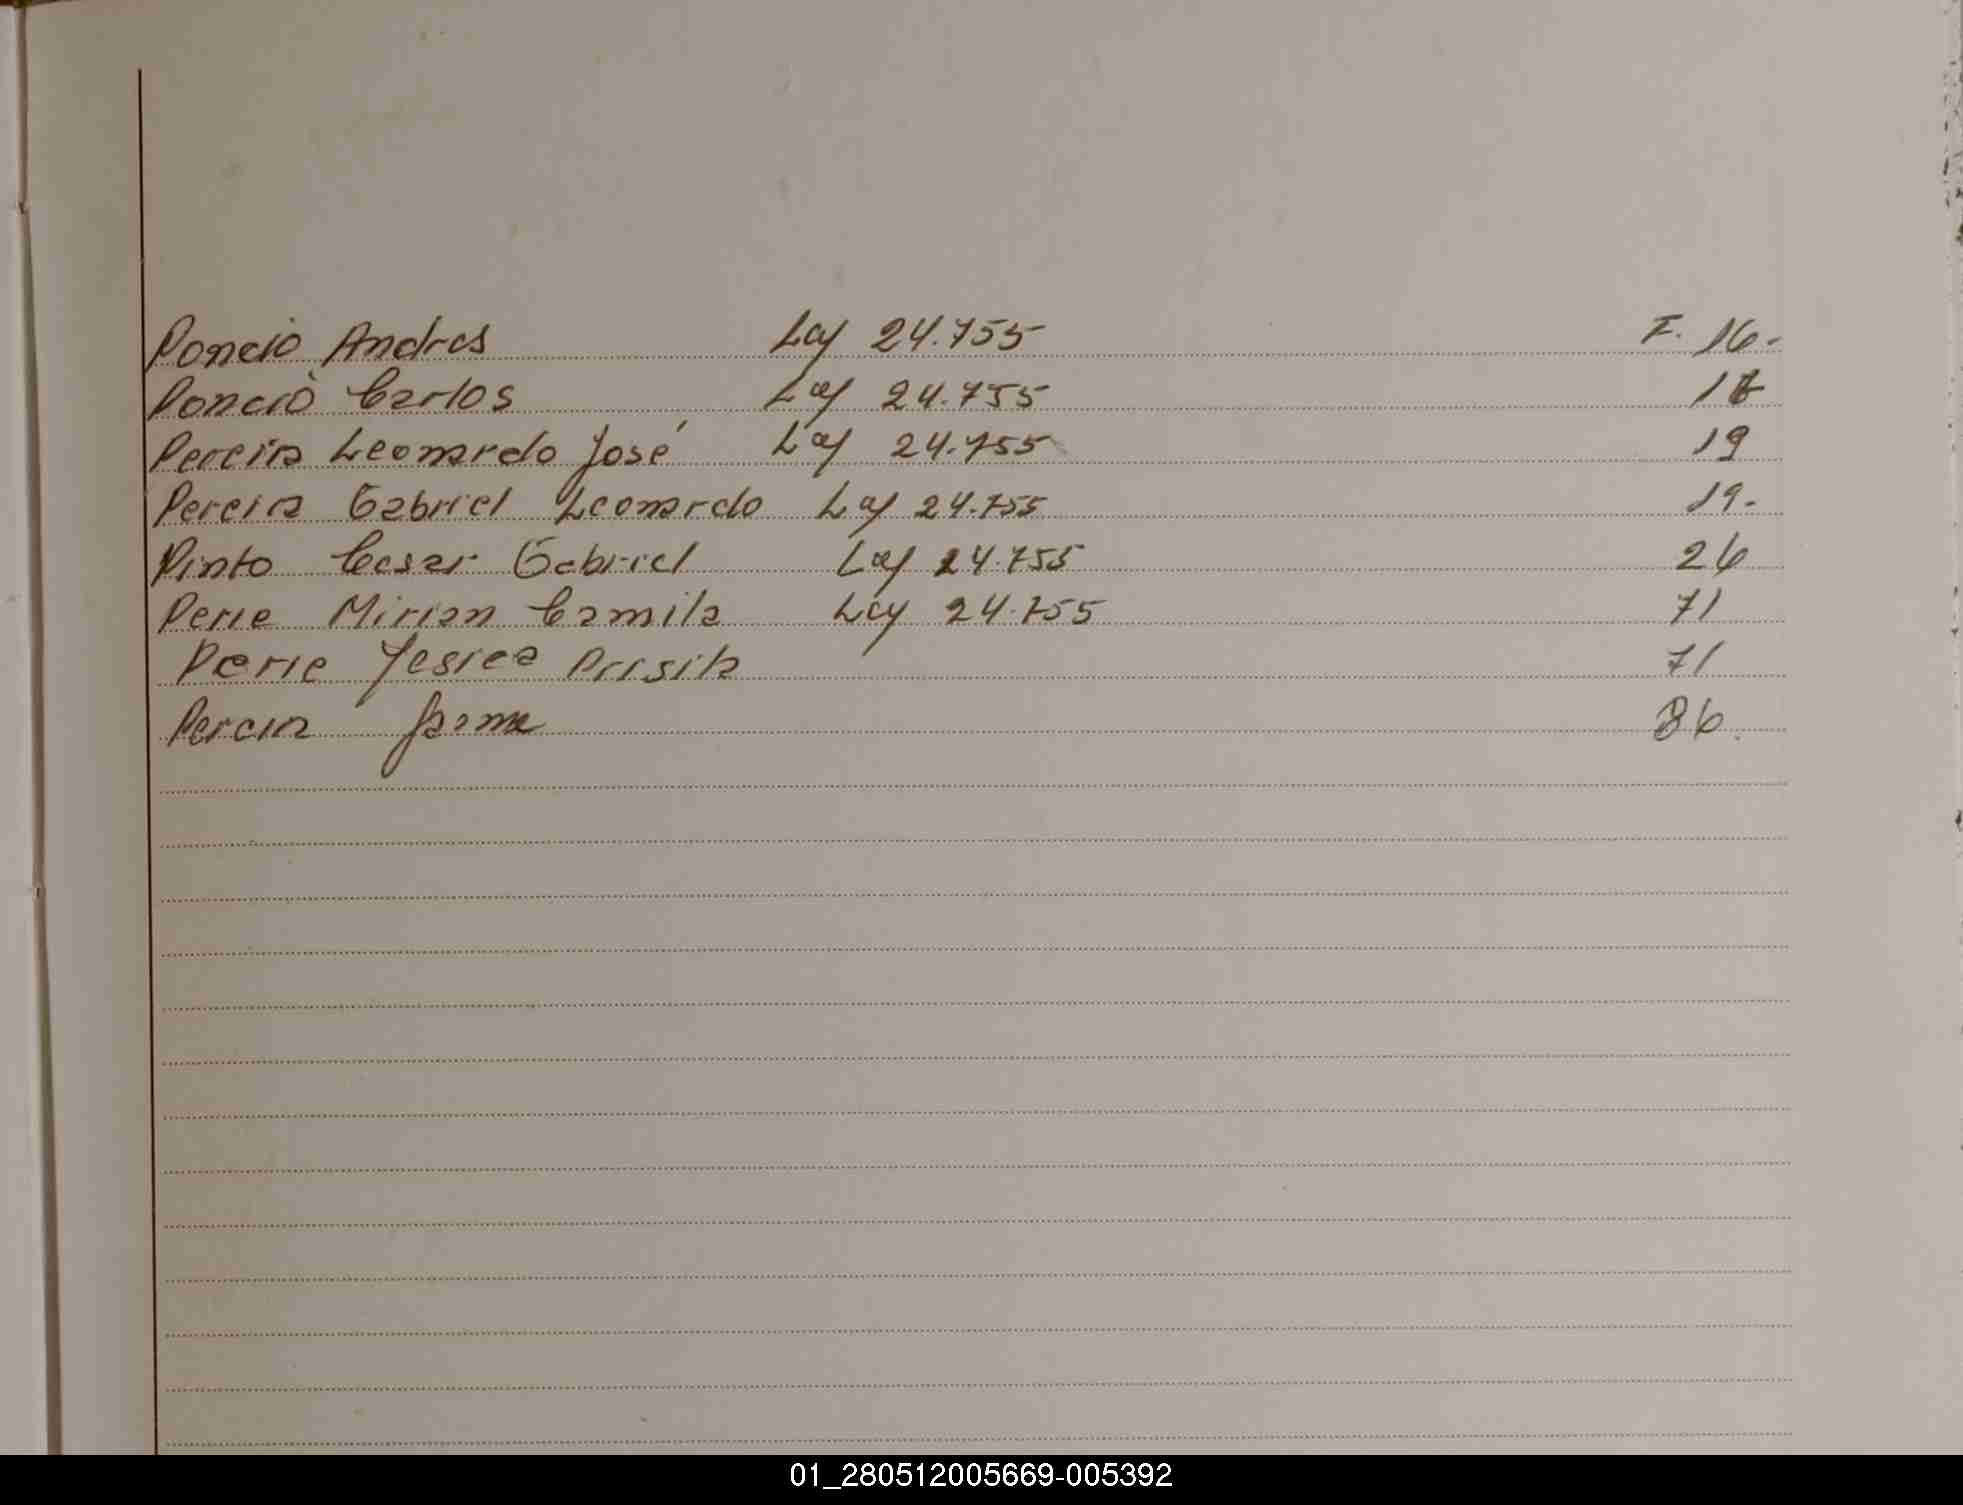 Poncio Andres Ley 24.755 F. 16.
Poncio Carlos Ley 24.755
Pereira Leonardo José Ley 24.755 19
Pereira Gabriel Leonardo Ley 24.755 19.
Pinto Cesar Gabriel Ley 24.755 26
Perie Mirian Camila Ley 24.755 71
Perie Yesica Prisila 71
Pereira 86.
01_280512005669-005392